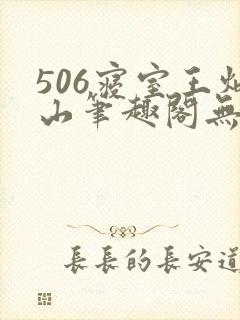 506寢室王灿
山筆趣閣無
長長的長安道